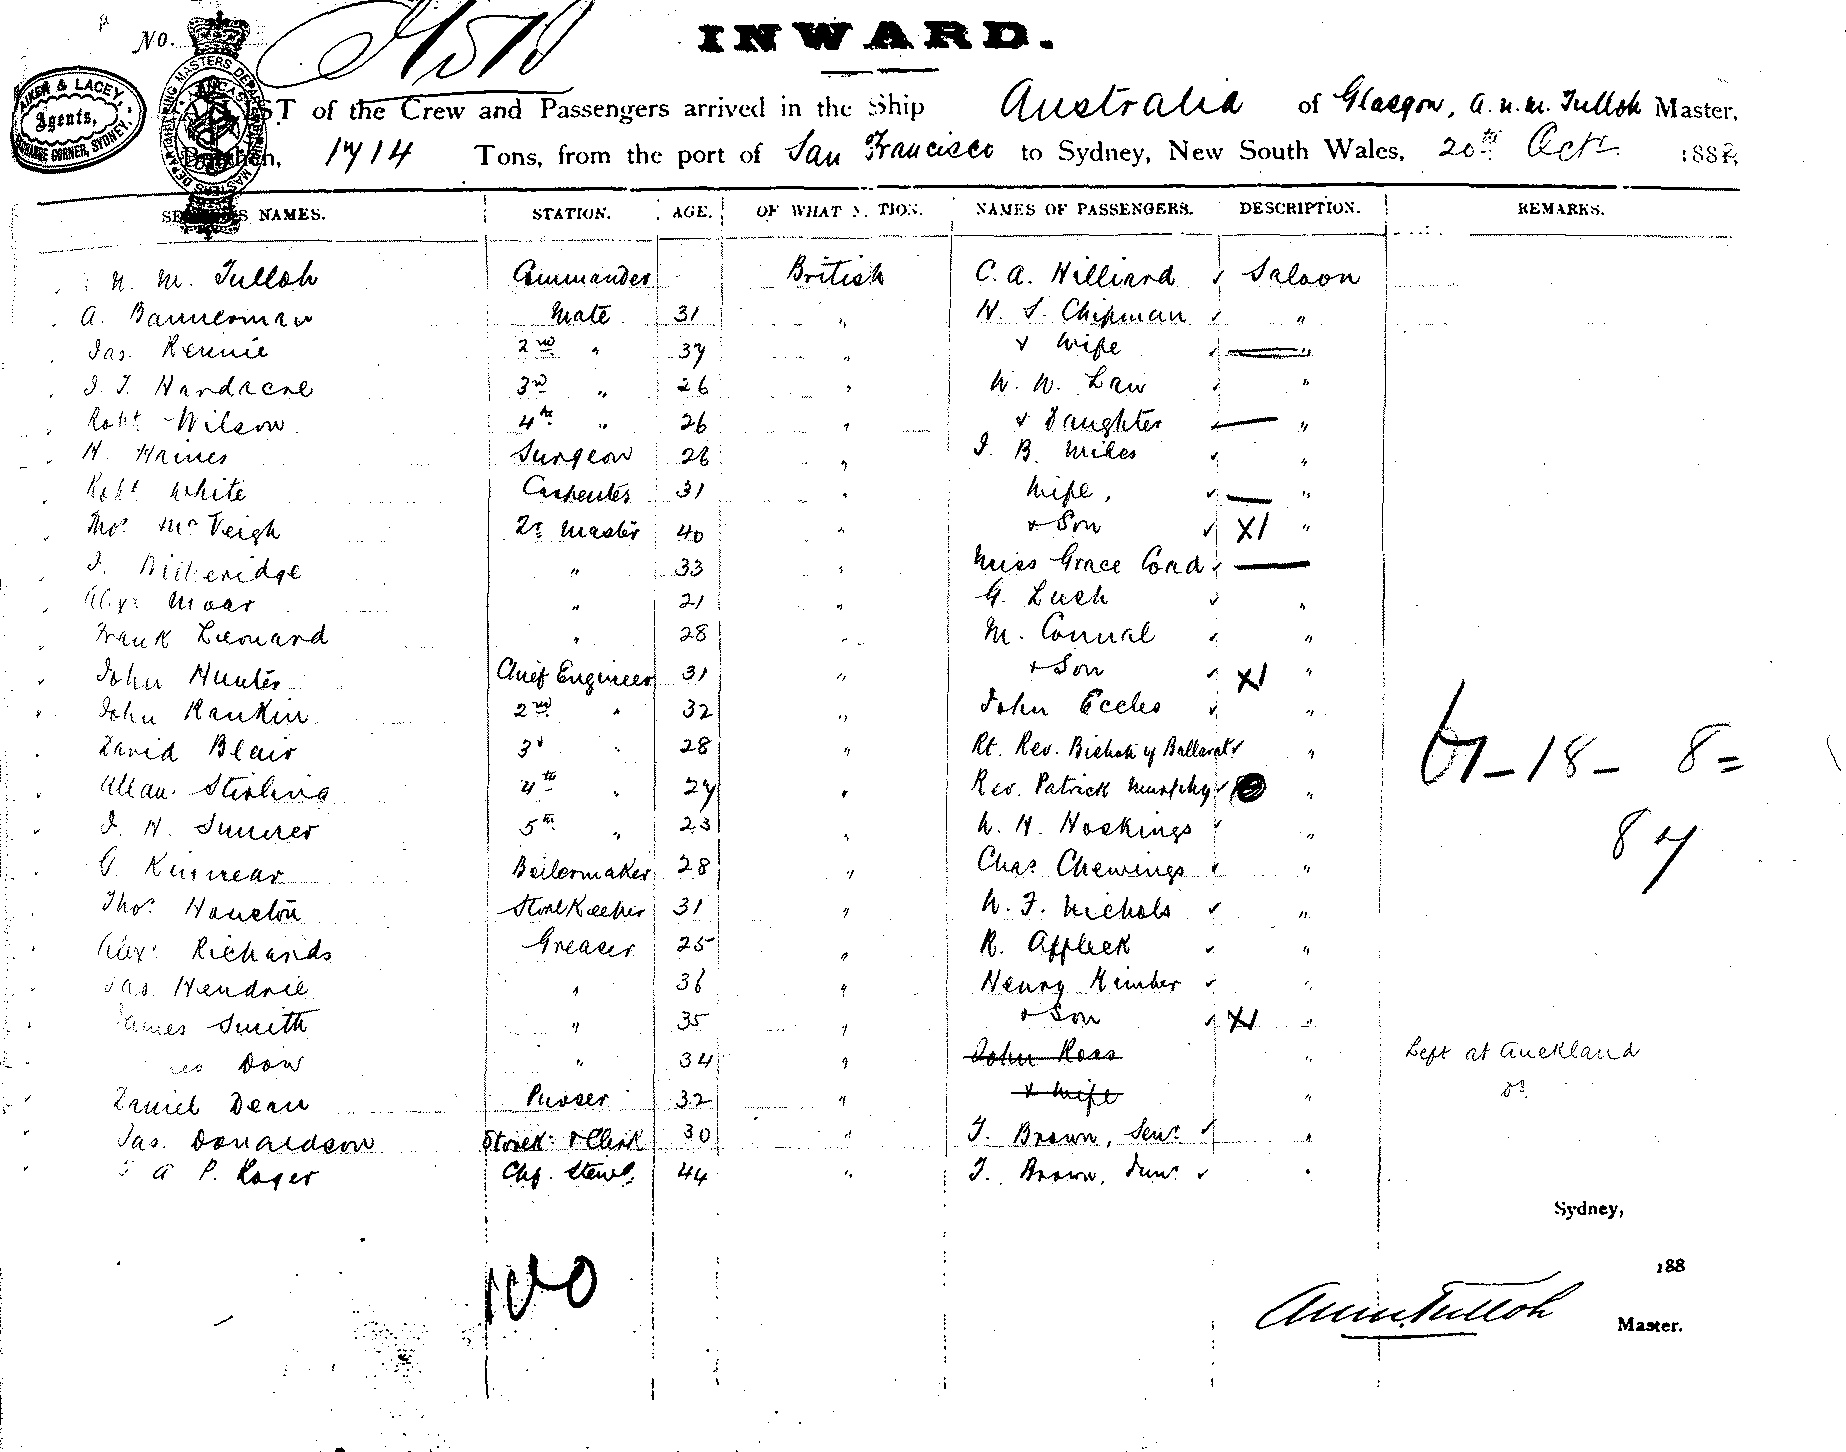 No.
INWARD.
AIKEN & LACEY,
Agents,
EXCHANGE CORNER, SYDNEY.
LIST of the Crew and Passengers arrived in the Ship Australia of Glasgow, A. N. M. Tulloh Master,
Burthen, 1714 Tons, from the port of San Francisco to Sydney, New South Wales, 20th Oct 1882
NAMES. STATION. AGE. OF WHAT NATION. NAMES OF PASSENGERS. DESCRIPTION. REMARKS.
N. M. Tulloh Commander British C. A. Hilliard ✓ Saloon
A. Bannerman Mate 31 " N. S. Chipman ✓ "
Jas. Rennie 2nd " 37 " + Wife ✓ "
J. T. Hardacre 3rd " 26 " W. W. Law ✓ "
Robt Wilson 4th " 26 " + Daughter "
H. Haines Surgeon 26 " J. B. Miles ✓ "
Robt White Carpenter 31 " Wife, ✓ "
Thos McVeigh Qr Master 40 " + Son ✓ X1 "
J. " 33 " Miss Grace Coad ✓
Alexr Moar " 21 " G. Lush ✓ "
Frank Leonard " 28 " M. Connal ✓ "
John Hunter Chief Engineer 31 " + Son ✓ X1 "
John Rankin 2nd " 32 " John Eccles ✓ "
David Blair 3d " 28 " Rt. Rev. Bishop of Ballarat ✓ "
Allan Stirling 4th " 27 " Rev. Patrick Murphy ✓ "
J. H. Sumner 5th " 23 " W. H. Hoskings ✓ "
G. Kinnear Boilermaker 28 " Chas. Chewings ✓ "
Thos. Houston Storekeeper 31 " W. F. Nichols ✓ "
Alexr Richards Greaser 25 " R. Affleck ✓ "
Jas Hendrie " 36 " Henry Kimber ✓ "
James Smith " 35 " + Son ✓ X1 "
Dow " 34 " John Ross " Left at Auckland
Daniel Dean Purser 32 " + Wife " Do
Jas. Donaldson Storek. & Clerk 30 " T. Brown, Senr ✓ "
A P. Roger Chf. Stewd. 44 " T. Brown, Junr ✓ "
61-18-8=
87
Sydney,
188
100
A.N.M. Tulloh Master.